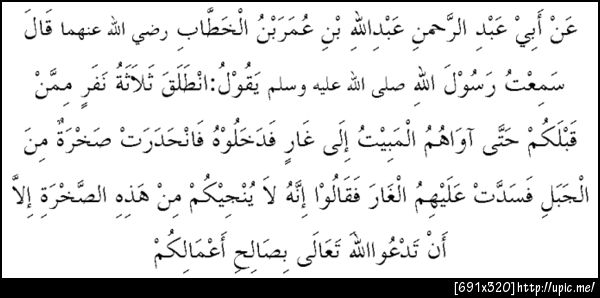 عَنْ أَبِيْ عَبْدِ الرَّحمنِ عَبْدِاللهِ بْنِ عُمَرَبْنُ الْخَطَّابِ رضي الله عنهما قَالَ
سَمِعْتُ رَسُوْلَ اللهِ صلى الله عليه وسلم يَقُوْلُ:انْطَلَقَ ثَلاَثَةُ نَفَرٍ مِمَّنْ
قَبْلَكُمْ حَتَّى آوَاهُمُ الْمَبِيْتُ إِلَى غَارٍ فَدَخَلُوْهُ فَانْحَدَرَتْ صَخْرَةٌ مِنَ
الْجَبَلِ فَسَدَّتْ عَلَيْهِمُ الْغَارَ فَقَالُوْا إِنَّهُ لاَ يُنْجِيْكُمْ مِنْ هَذِهِ الصَّخْرَةِ إِلاَّ
أَنْ تَدْعُوااللهَ تَعَالَى بِصَالِحِ أَعْمَالِكُمْ
[691x320]http://upic.me/